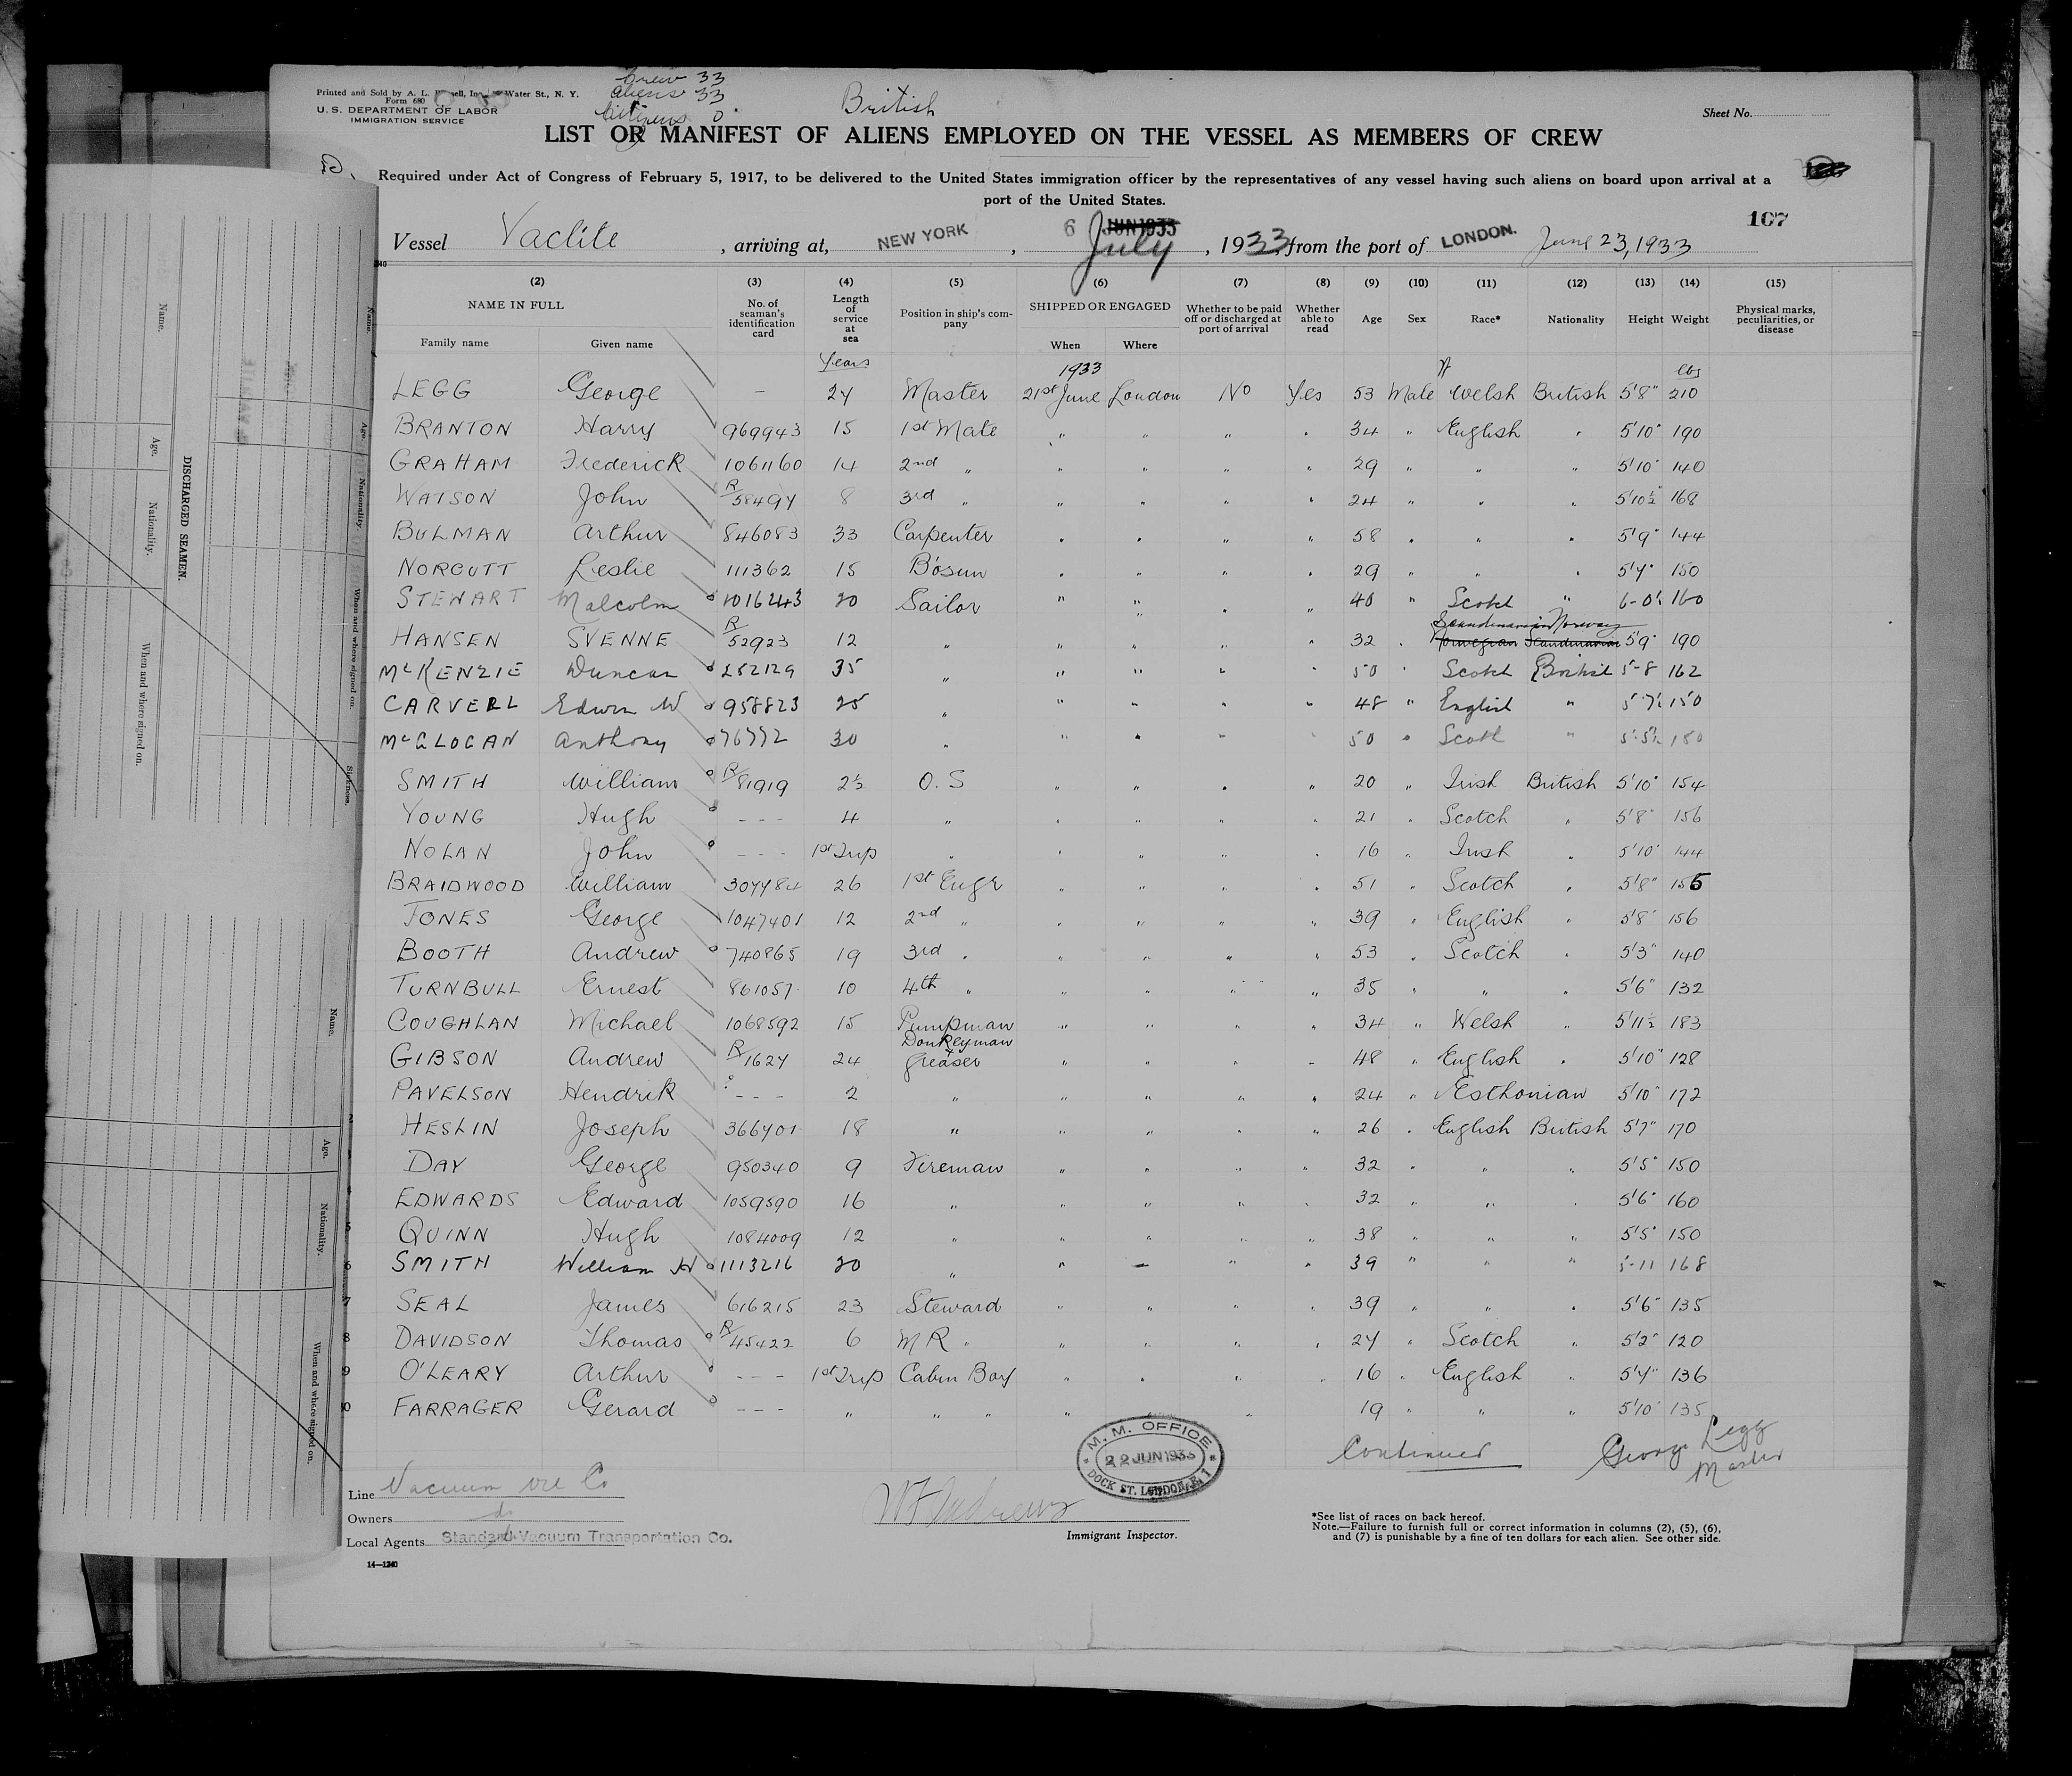 Crew 33
Aliens 33
Citizens 0
British
Printed and Sold by A. L. Water St., N. Y.
Form 680
U. S. DEPARTMENT OF LABOR
IMMIGRATION SERVICE
Sheet No.
LIST OR MANIFEST OF ALIENS EMPLOYED ON THE VESSEL AS MEMBERS OF CREW
Required under Act of Congress of February 5, 1917, to be delivered to the United States immigration officer by the representatives of any vessel having such aliens on board upon arrival at a
port of the United States.
107
Vessel Vaclite, arriving at, NEW YORK, 6 JUN 1933 July, 1933, from the port of LONDON. June 23, 1933
(2) (3) (4) (5) (6) (7) (8) (9) (10) (11) (12) (13) (14) (15)
NAME IN FULL No. of seaman's identification card Length of service at sea Position in ship's company SHIPPED OR ENGAGED Whether to be paid off or discharged at port of arrival Whether able to read Age Sex Race* Nationality Height Weight Physical marks, peculiarities, or disease
Family name Given name When Where
Years 1933 lbs
LEGG George – 27 Master 21st June London No Yes 53 Male Welsh British 5'8" 210
BRANTON Harry 969943 15 1st Mate " " " " 34 " English " 5'10" 190
GRAHAM Frederick 1061160 14 2nd " " " " " 29 " " " 5'10" 140
WATSON John R/58497 8 3rd " " " " " 24 " " " 5'10½" 168
BULMAN Arthur 846083 33 Carpenter " " " " 58 " " " 5'9" 144
NORCUTT Leslie 111362 15 Bosun " " " " 29 " " " 5'7" 150
STEWART Malcolm 1016243 20 Sailor " " " " 40 " Scotch " 6-0½ 160
Scandinavian Norway
HANSEN SVENNE R/52923 12 " " " " " 32 " Norwegian Scandinavian 5'9" 190
McKENZIE Duncan 252129 35 " " " " " 50 " Scotch British 5-8 162
CARVELL Edwin W 958823 25 " " " " " 48 " English " 5-7½ 150
McGLOGAN Anthony 76772 30 " " " " " 50 " Scotch " 5-5½ 180
SMITH William R/81919 2½ O.S " " " " 20 " Irish British 5'10" 154
YOUNG Hugh --- 4 " " " " " 21 " Scotch " 5'8" 156
NOLAN John --- 1st Trip " " " " " 16 " Irish " 5'10" 144
BRAIDWOOD William 307784 26 1st Engr " " " " 51 " Scotch " 5'8" 155
JONES George 1047401 12 2nd " " " " " 39 " English " 5'8" 156
BOOTH Andrew 740865 19 3rd " " " " " 53 " Scotch " 5'3" 140
TURNBULL Ernest 861057 10 4th " " " " " 35 " " " 5'6" 132
COUGHLAN Michael 1068592 15 Pumpman " " " " 34 " Welsh " 5'11½ 183
GIBSON Andrew R/1627 24 Donkeyman & Greaser " " " " 48 " English " 5'10" 128
PAVELSON Hendrik --- 2 " " " " " 24 " Esthonian 5'10" 172
HESLIN Joseph 366701 18 " " " " " 26 " English British 5'7" 170
DAY George 950340 9 Fireman " " " " 32 " " " 5'5" 150
EDWARDS Edward 1059590 16 " " " " " 32 " " " 5'6" 160
QUINN Hugh 1084009 12 " " " " " 38 " " " 5'5" 150
SMITH William H 1113216 20 " " " " " 39 " " " 5-11 168
SEAL James 616215 23 Steward " " " " 39 " " " 5'6" 135
DAVIDSON Thomas R/45422 6 M R " " " " " 27 " Scotch " 5'2" 120
O'LEARY Arthur --- 1st Trip Cabin Boy " " " " 16 " English " 5'7" 136
FARRAGER Gerard --- " " " " " 19 " " " 5'10" 135
Continued George Legg
Master
M. M. OFFICE
22 JUN 1933
DOCK ST. LONDON, E. 1
Line Vacuum Oil Co
Owners do
Local Agents Standard-Vacuum Transportation Co.
W F Andrews
Immigrant Inspector.
*See list of races on back hereof.
Note.—Failure to furnish full or correct information in columns (2), (5), (6),
and (7) is punishable by a fine of ten dollars for each alien. See other side.
14—1240
DISCHARGED SEAMEN.
Name.
Age.
Nationality.
When and where signed on.
Name.
Age.
Nationality.
When and where signed on.
Sickness.
Name.
Age.
Nationality.
When and where signed on.